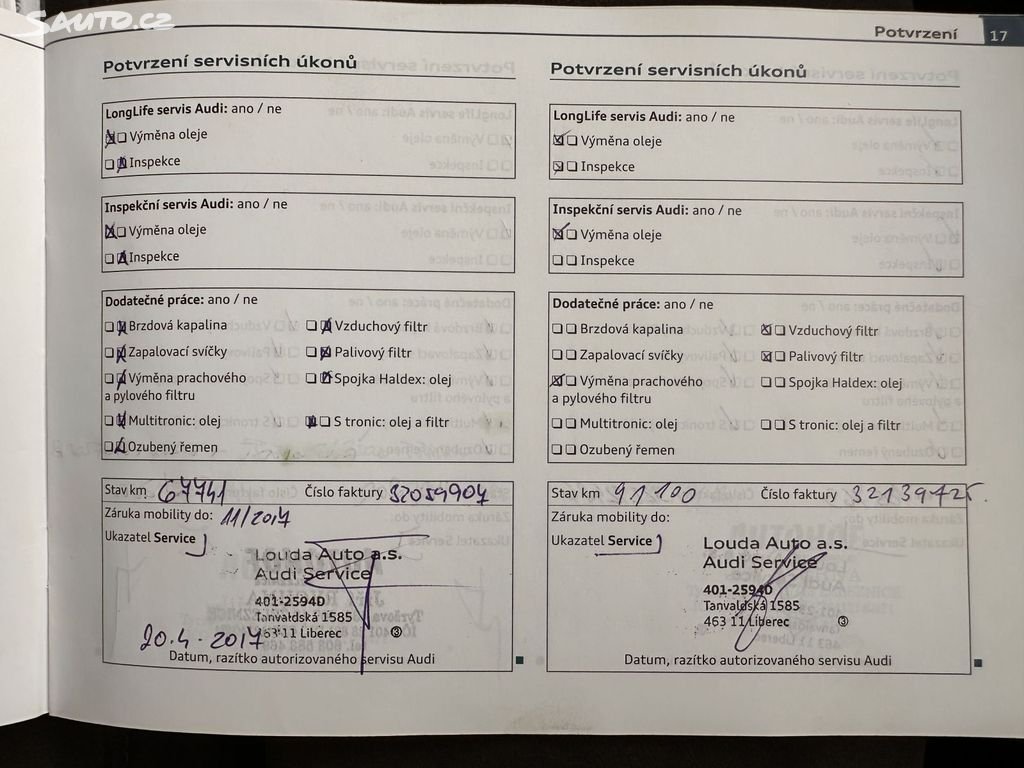 SAUTO.CZ
Potvrzení 17
Potvrzení servisních úkonů
LongLife servis Audi: ano / ne
Výměna oleje
Inspekce
Inspekční servis Audi: ano / ne
Výměna oleje
Inspekce
Dodatečné práce: ano / ne
Brzdová kapalina Vzduchový filtr
Zapalovací svíčky Palivový filtr
Výměna prachového Spojka Haldex: olej
a pylového filtru
Multitronic: olej S tronic: olej a filtr
Ozubený řemen
Stav km 67741 Číslo faktury 32059904
Záruka mobility do: 11/2017
Ukazatel Service
Louda Auto a.s.
Audi Service
401-2594D
Tanvaldská 1585
463 11 Liberec ③
20.4.2017
Datum, razítko autorizovaného servisu Audi
Potvrzení servisních úkonů
LongLife servis Audi: ano / ne
Výměna oleje
Inspekce
Inspekční servis Audi: ano / ne
Výměna oleje
Inspekce
Dodatečné práce: ano / ne
Brzdová kapalina Vzduchový filtr
Zapalovací svíčky Palivový filtr
Výměna prachového Spojka Haldex: olej
a pylového filtru
Multitronic: olej S tronic: olej a filtr
Ozubený řemen
Stav km 91100 Číslo faktury 32139725.
Záruka mobility do:
Ukazatel Service
Louda Auto a.s.
Audi Service
401-2594D
Tanvaldská 1585
463 11 Liberec ③
Datum, razítko autorizovaného servisu Audi